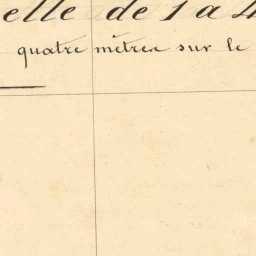 elle de 1 a 4
quatre mètres sur le